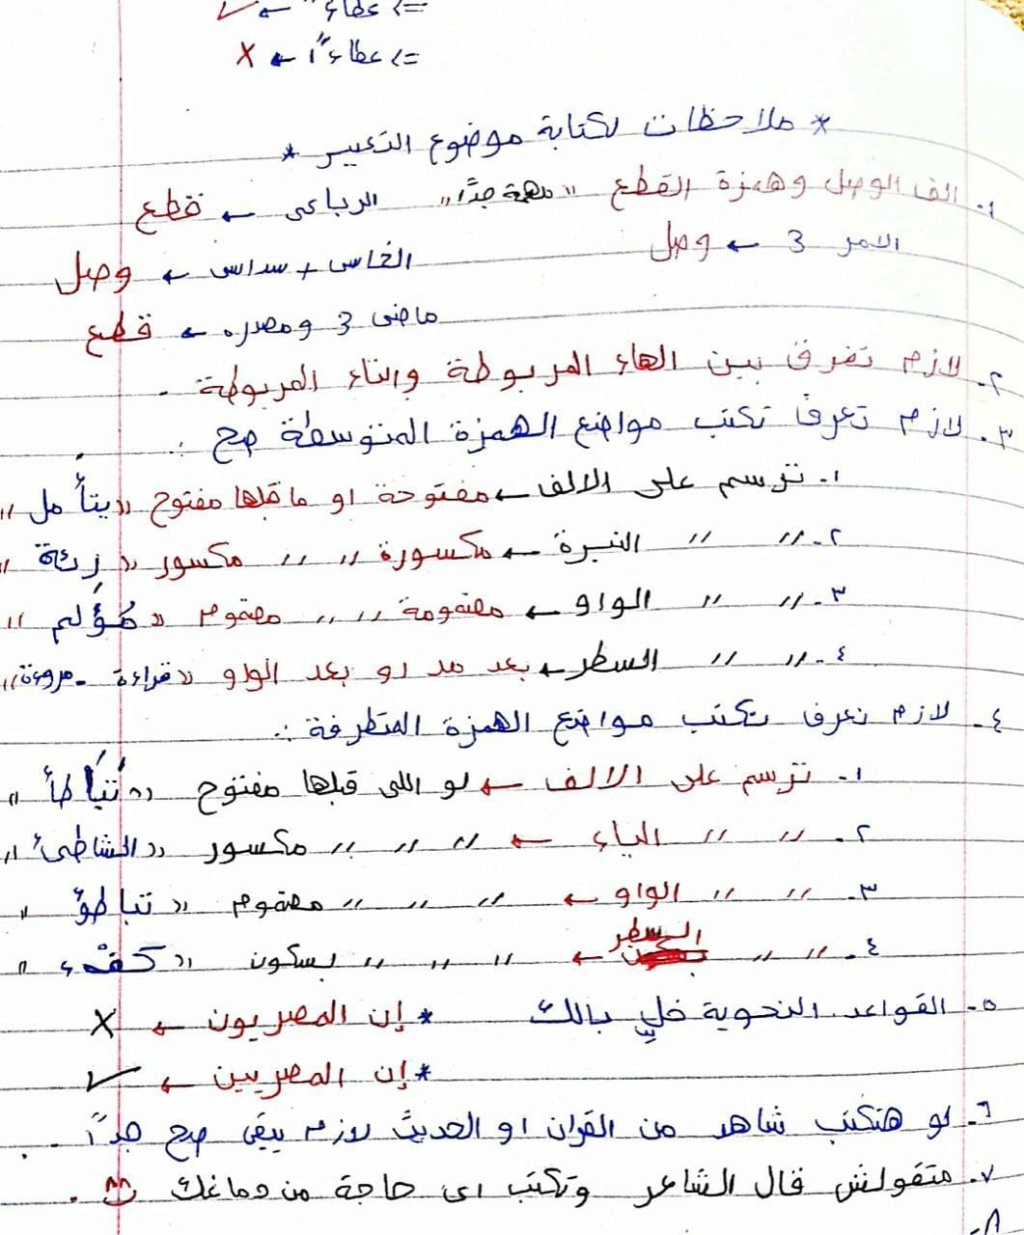 => عطاءً ← ✓
=> عطاءاً ← X
* ملاحظات لكتابة موضوع التعبير *
١- الف الوصل وهمزة القطع "مهمة جدًا" الرباعى ← قطع
الامر 3 ← وصل الخاسى + سداسى ← وصل
ماضى 3 ومصدره ← قطع
٢- لازم تفرق بين الهاء المربوطة والتاء المربوطة .
٣- لازم تعرف تكتب مواضع الهمزة المتوسطة صح :
١- ترسم على الالف ← مفتوحة او ماقبلها مفتوح "يتأمل"
٢- " " النبرة ← مكسورة " " مكسور "رئة"
٣- " " الواو ← مضمومة " " مضموم "مُؤلم"
٤- " " السطر ← بعد مد او بعد الواو "قراءة - مروءة"
٤- لازم تعرف تكتب مواضع الهمزة المتطرفة :
١- ترسم على الالف ← لو اللى قبلها مفتوح "نَبَأ خطأ"
٢- " " الياء ← " " " مكسور "الشاطئ"
٣- " " الواو ← " " " مضموم "تباطؤ"
٤- " " السطر ← " " " بسكون "كفْء"
٥- القواعد النحوية خلي بالك * إن المصريون ← X
* إن المصريين ← ✓
٦- لو هتكتب شاهد من القران او الحديث لازم يبقى صح جدًا .
٧- متقولش قال الشاعر وتكتب اى حاجة من دماغك .
٨-